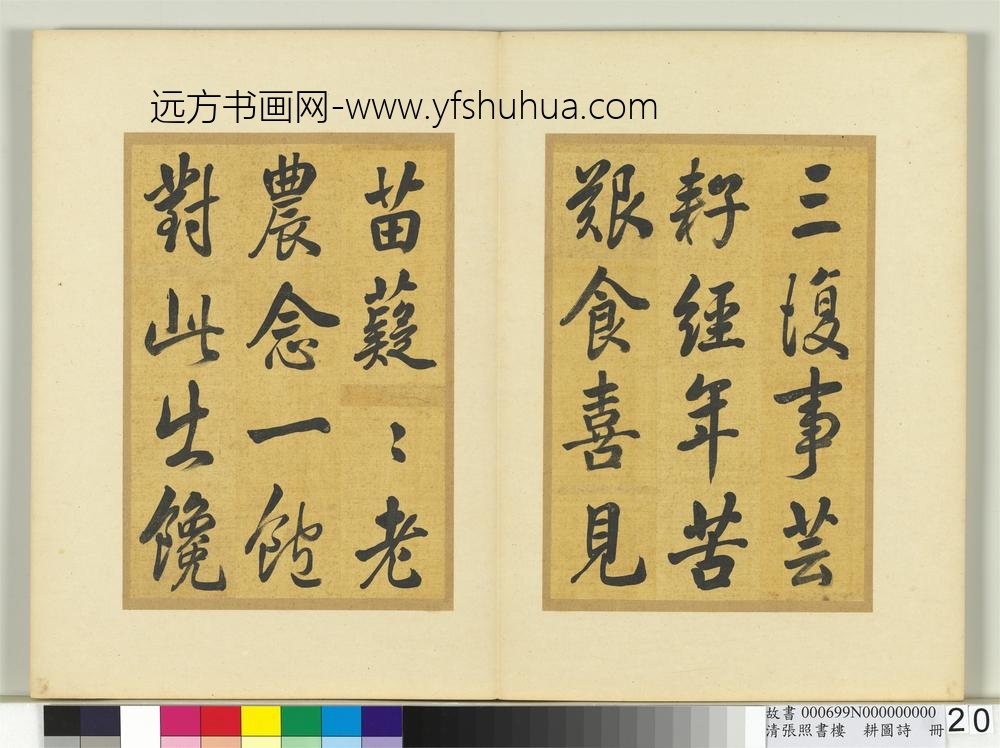 远方书画网-www.yfshuhua.com
三復事芸
耔經年苦
艱食喜見
苗薿〻老
農念一飽
對此生饞
故書 000699N000000000
清張照書樓 耕圖詩 冊
20